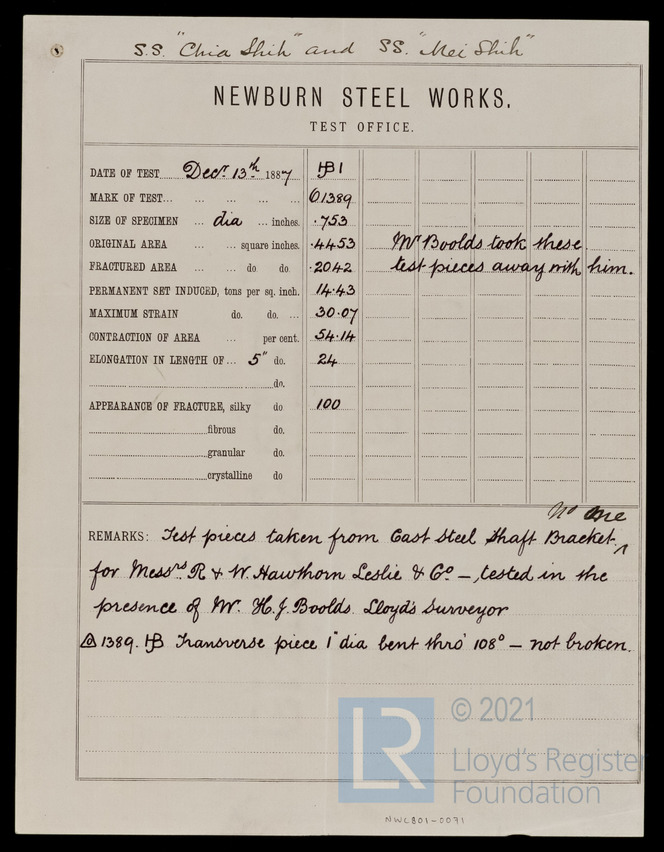 S.S. "Chia Shih" and SS. "Mei Shih"
NEWBURN STEEL WORKS.
TEST OFFICE.
DATE OF TEST Decr 13th 1887 HB 1
MARK OF TEST 61389
SIZE OF SPECIMEN dia inches. .753
ORIGINAL AREA square inches. .4453 Mr Boolds took these
FRACTURED AREA do do. .2042 test pieces away with him.
PERMANENT SET INDUCED, tons per sq. inch. 14.43
MAXIMUM STRAIN do. do. 30.07
CONTRACTION OF AREA per cent. 54.14
ELONGATION IN LENGTH OF 5" do. 24
do.
APPEARANCE OF FRACTURE, silky do 100
fibrous do.
granular do.
crystalline do
No One
REMARKS: Test pieces taken from Cast Steel Shaft Bracket
for Messrs R & W. Hawthorn Leslie & Co —, tested in the
presence of Mr. H.J. Boolds. Lloyd's Surveyor
1389. HB Transverse piece 1" dia bent thro' 108° — not broken.
LR
© 2021
Lloyd's Register
Foundation
NWC801-0071